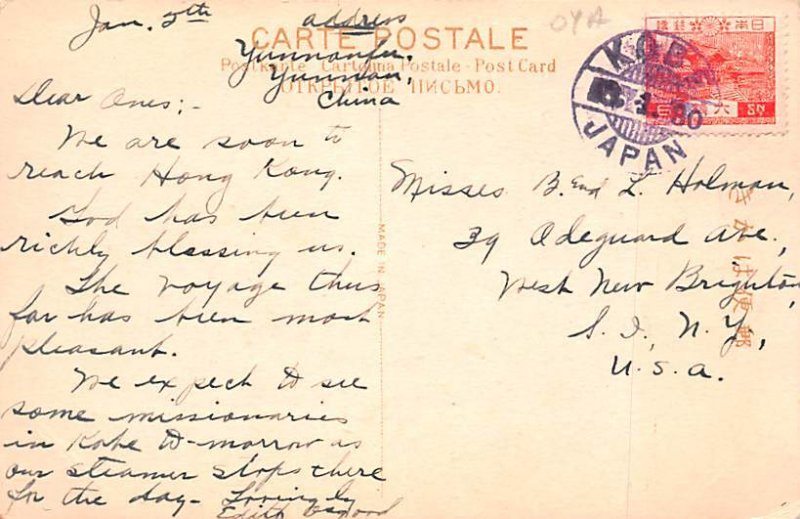 Jan. 5th
address
Yunnanfu,
Yunnan,
China
OYA
CARTE POSTALE
Postkarte - Cartolina Postale - Post Card
ОТКРЫТОЕ ПИСЬМО.
Dear Ones:-
We are soon to
reach Hong Kong.
God has been
richly blessing us.
The voyage thus
far has been most
pleasant.
We expect to see
some missionaries
in Kobe to-morrow as
our steamer stops there
for the day- Lovingly
Edith Osgood
MADE IN JAPAN
KOBE
JAPAN
日本
六
SN
Misses B. and L. Holman,
39 Odeguard Ave.,
West New Brighton
S. I., N. Y.,
U. S. A.
きかは便郵